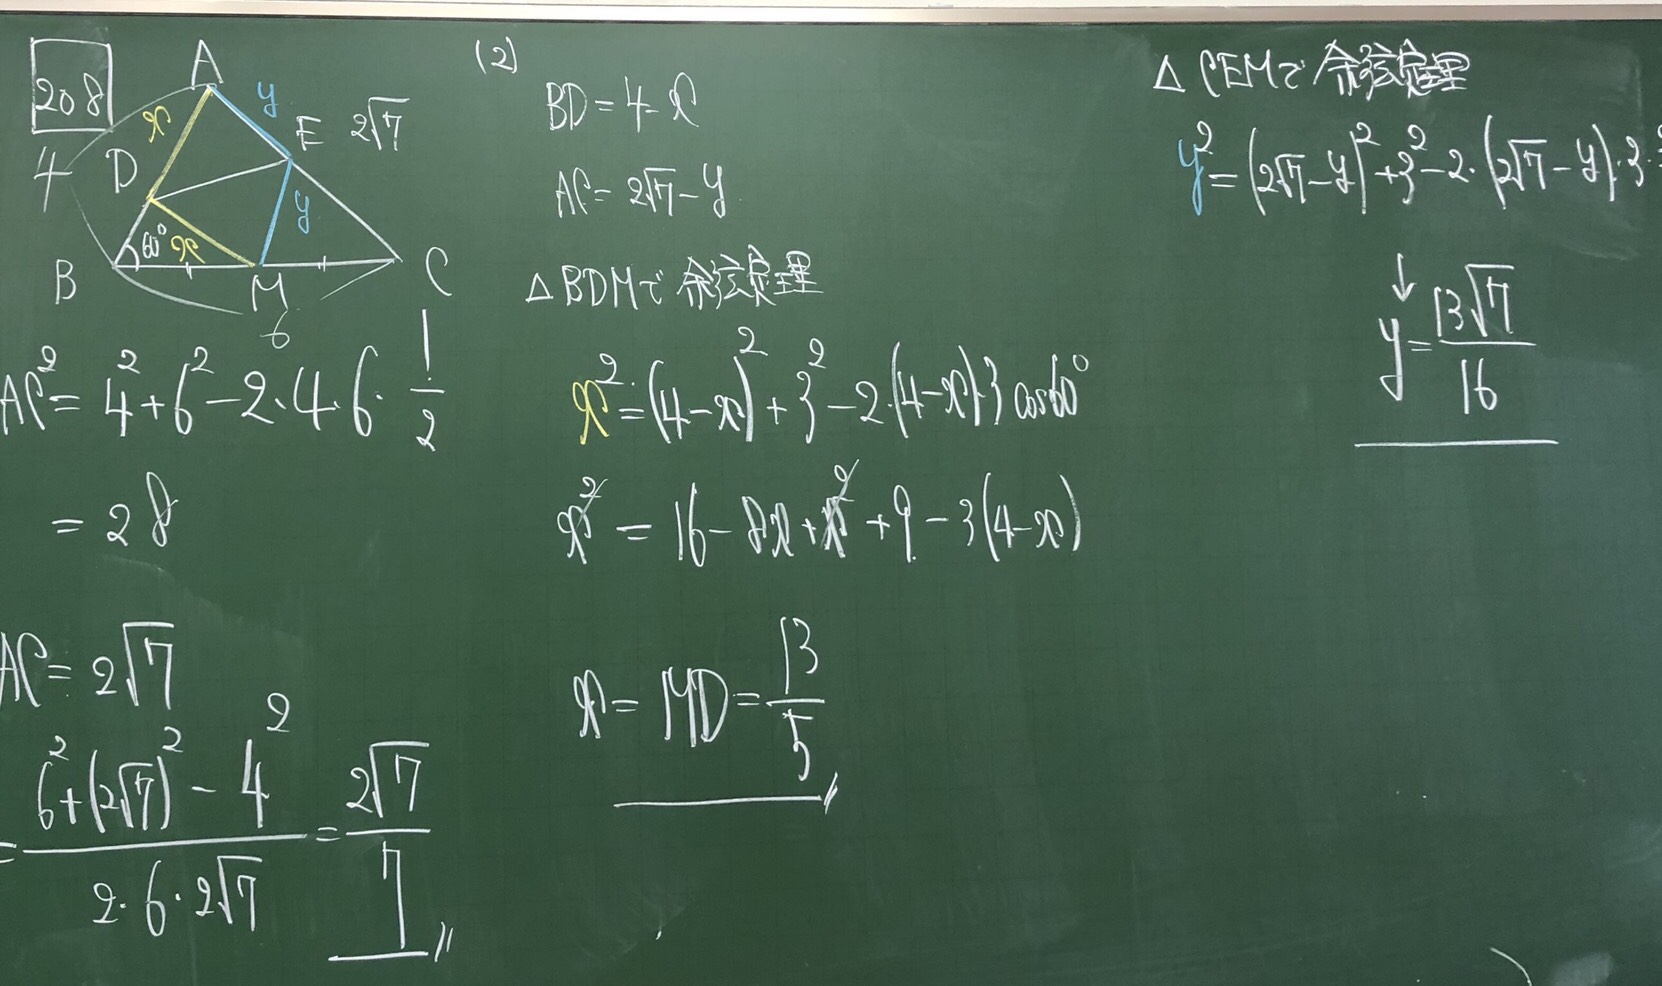 208
A
y
x
E 2√7
4
D
y
60° x
B
M
C
6
AC² = 4² + 6² - 2・4・6・1/2
= 28
AC = 2√7
= (6² + (2√7)² - 4²)/(2・6・2√7) = 2√7/7
(2)
BD = 4 - x
AC = 2√7 - y
△BDMで余弦定理
x² = (4-x)² + 3² - 2・(4-x)・3 cos60°
x² = 16 - 8x + x² + 9 - 3(4-x)
x = MD = 13/5
△CEMで余弦定理
y² = (2√7-y)² + 3² - 2・(2√7-y)・3・
↓
y = 13√7/16